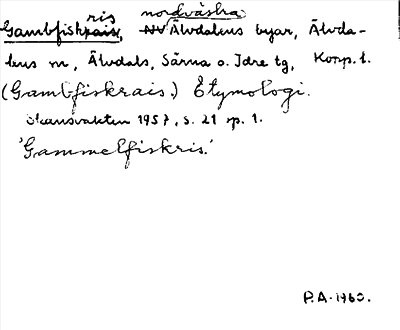 ris nordvästra
Gambfiskrais, NV Älvdalens byar, Älvda-
lens m, Älvdals, Särna o. Idre tg, Kopp. l.
(Gambfiskrais.) Etymologi.
Skansvakten 1957, s. 21 sp. 1.
'Gammelfiskris.'
P.A. 1960.